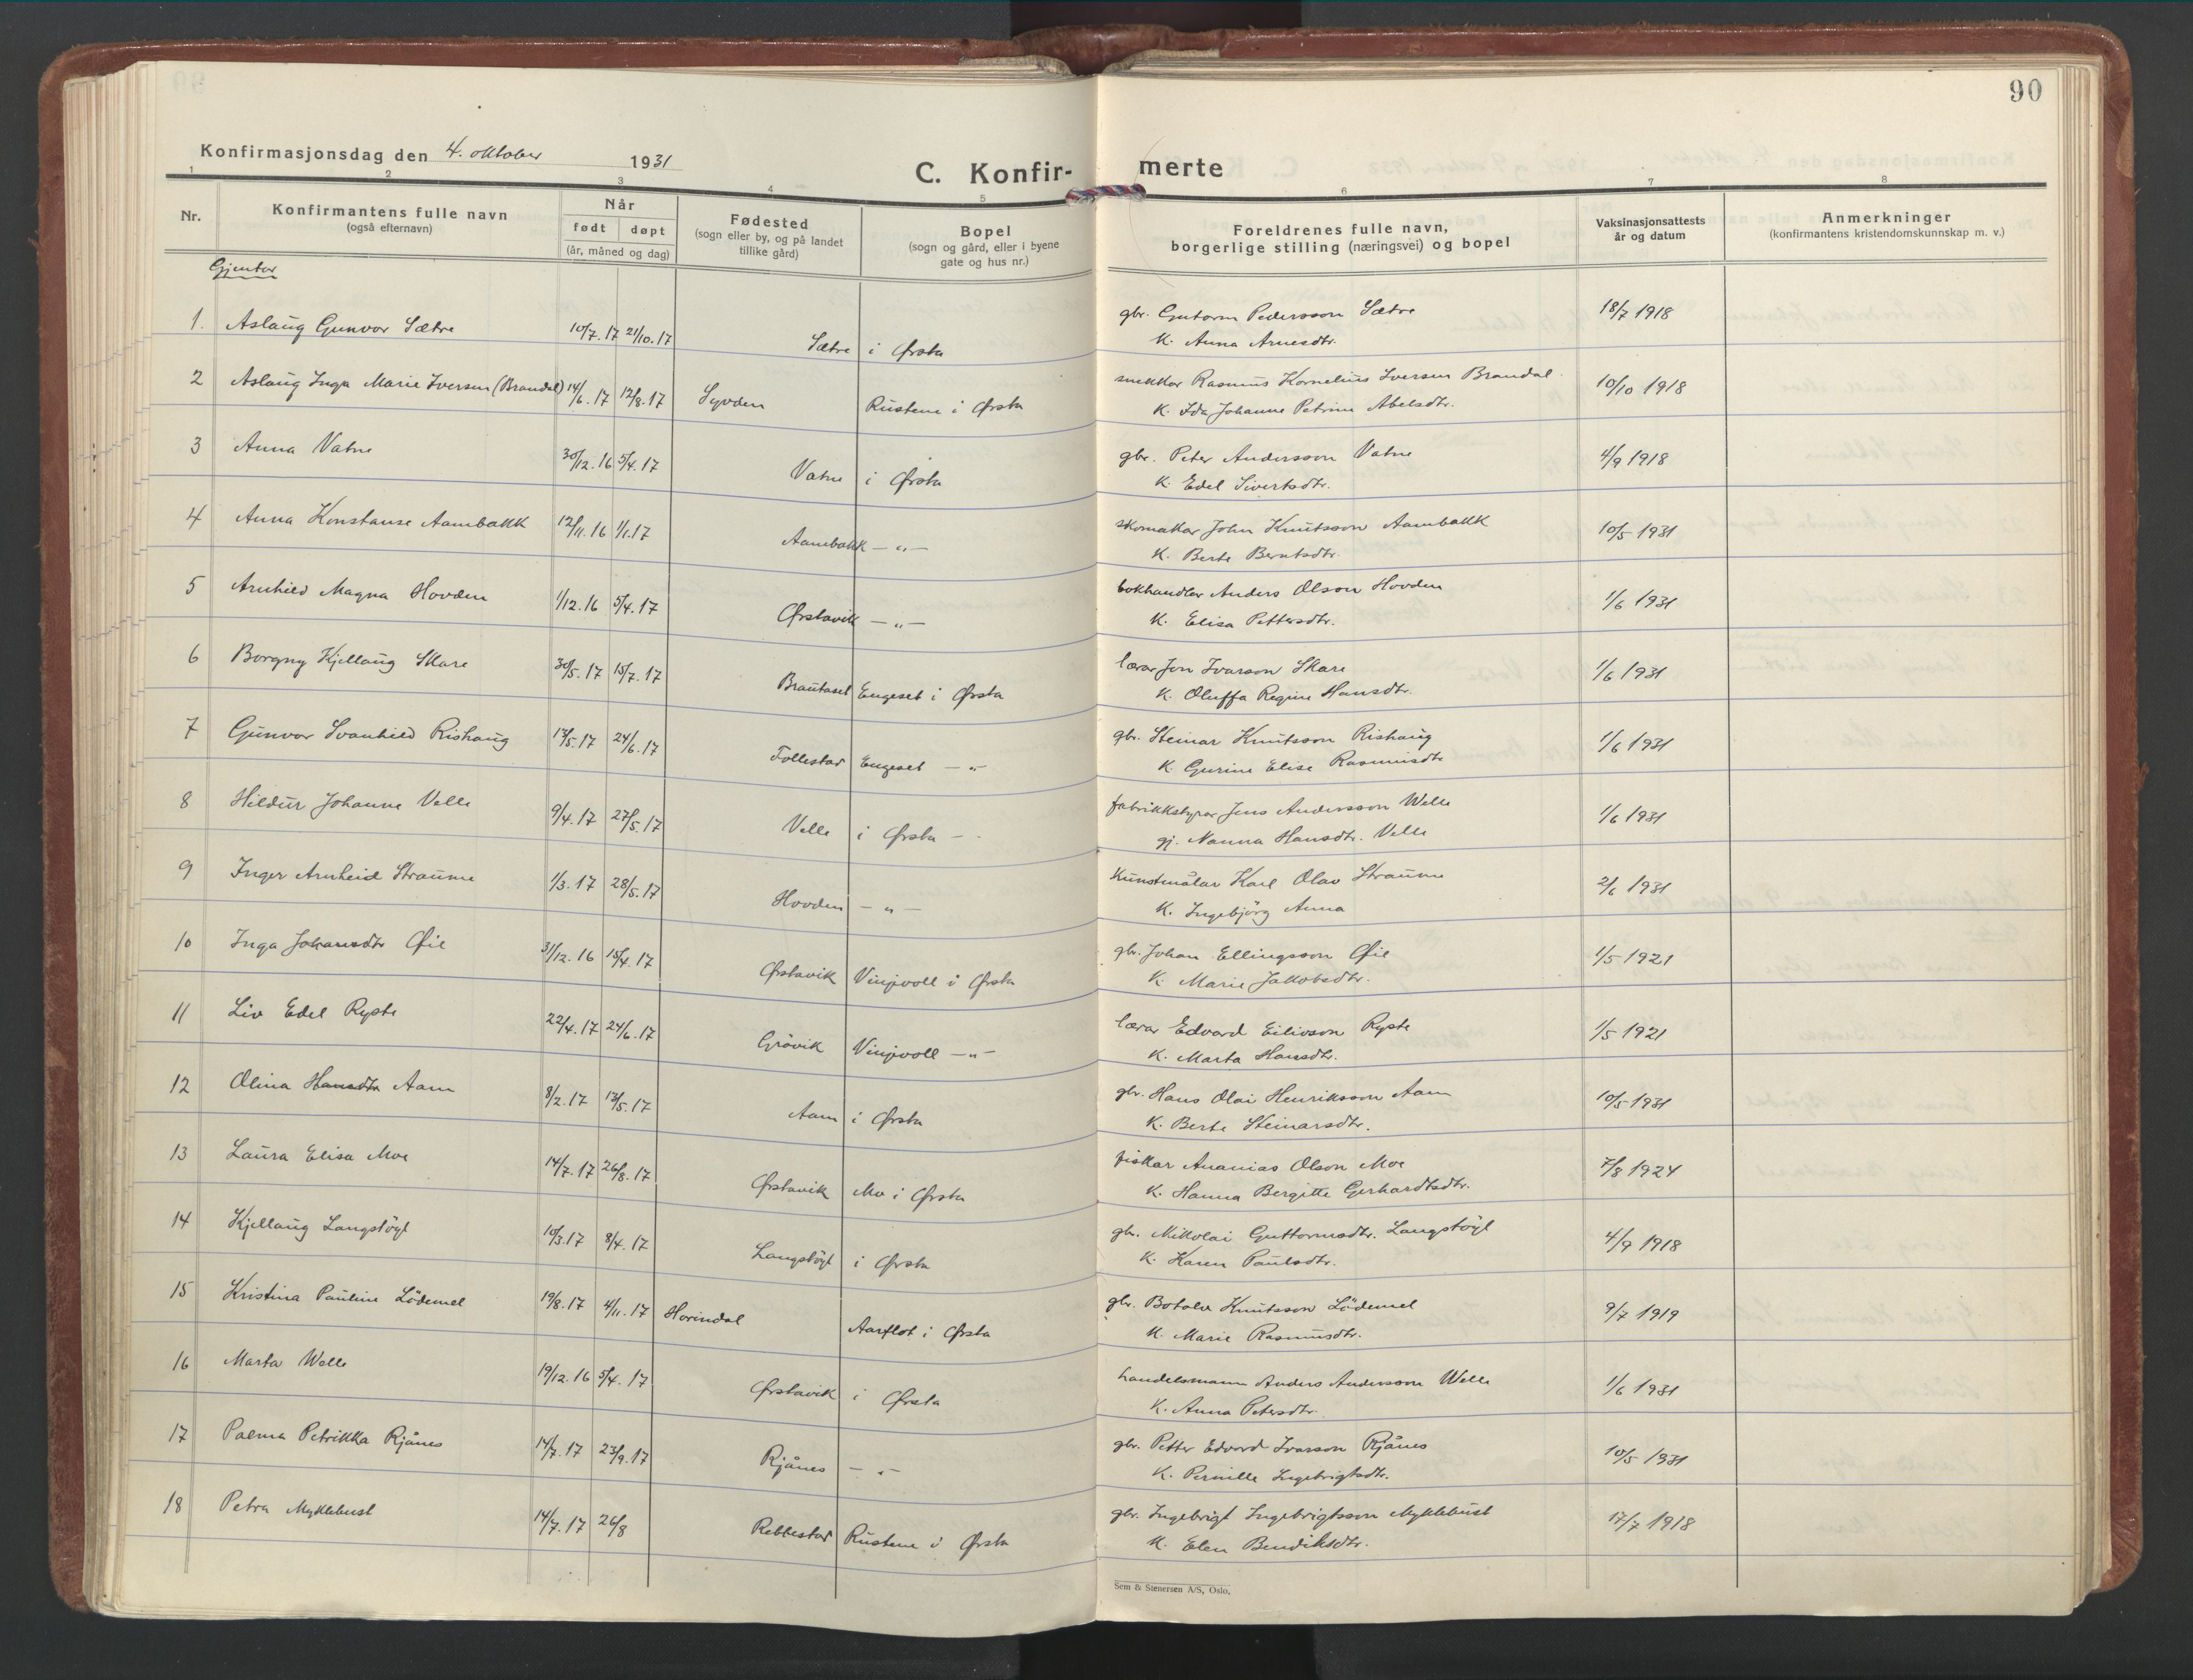 90
Konfirmasjonsdag den 4. oktober 1931
C. Konfir- merte
1 2 3 4 5 6 7 8
Nr. Konfirmantens fulle navn (også efternavn) Når født døpt (år, måned og dag) Fødested (sogn eller by, og på landet tillike gård) Bopel (sogn og gård, eller i byene gate og hus nr.) Foreldrenes fulle navn, borgerlige stilling (næringsvei) og bopel Vaksinasjonsattests år og datum Anmerkninger (konfirmantens kristendomskunnskap m. v.)
Gjentor
1. Aslaug Gunvor Sætre 10/7.17 21/10.17 Sætre i Ørsta gbr. Gutorm Pedersson Sætre 18/7 1918
K. Anna Arnesdtr.
2 Aslaug Inga Marie Iversen (Brandal) 14/6.17 12/8.17 Syvden Rustene i Ørsta snekkar Rasmus Kornelius Iversen Brandal. 10/10 1918
K. Ida Johanne Petrine Abelsdtr.
3 Anna Vatne 30/12.16 5/4.17 Vatne i Ørsta gbr. Peter Andersson Vatne 4/9 1918
K. Edel Sivertsdtr.
4 Anna Konstanse Aambakk 12/11.16 1/1.17 Aambakk — „ — skomakar John Knutsson Aambakk 10/5 1931
K. Berte Berntsdtr.
5 Arnhild Magna Hovden 1/12.16 5/4.17 Ørstavik — „ — bokhandlar Anders Olson Hovden 1/6 1931
K. Elisa Pettersdtr.
6 Borgny Kjellaug Skare 30/5.17 15/7.17 Brautaset Engeset i Ørsta lærar Jon Ivarson Skare 1/6 1931
K. Oluffa Regine Hansdtr.
7 Gunvor Svanhild Rishaug 13/5.17 24/6.17 Follestad Engeset — „ gbr. Steinar Knutsson Rishaug 1/6 1931
K. Gurine Elise Rasmusdtr
8 Hildur Johanne Velle 9/4.17 27/5.17 Velle i Ørsta fabrikkstyrar Jens Andersson Welle 1/6 1931
gj. Nanna Hansdtr. Velle
9 Inger Arnheid Straume 1/3.17 28/5.17 Hovden — „ — Kunstmålar Karl Olav Straume 2/6 1931
K. Ingebjörg Anna
10 Inga Johansdtr Øie 31/12.16 15/4.17 Ørstavik Vinjevoll i Ørsta gbr. Johan Ellingsson Øie 1/5 1921
K. Marie Jakobsdtr.
11 Liv Edel Ryste 22/4.17 24/6.17 Grövik Vinjevoll — „ — lærar Edvard Eilivson Ryste 1/5 1921
K. Marta Hansdtr.
12 Olina Hansdtr Aam 8/2.17 13/5.17 Aam i Ørsta gbr. Hans Olai Henriksson Aam 10/5 1931
K. Berte Steinarsdtr.
13 Laura Elisa Moe 14/7.17 26/8.17 Ørstavik Mo i Ørsta fiskar Ananias Olson Moe 7/8 1924
K. Hanna Bergitte Gerhardtsdtr.
14 Kjellaug Langstöyl 10/3.17 8/4.17 Langstöyl i Ørsta gbr. Nikolai Guttormsdtr. Langstöyl 4/9 1918
K. Karen Paulsdtr.
15 Kristina Pauline Lödemel 19/8.17 4/11.17 Horindal Aarflot i Ørsta gbr. Botolv Knutsson Lödemel 9/7 1919
K. Marie Rasmusdtr.
16 Marta Welle 19/12.16 5/4.17 Ørstavik i Ørsta handelsmann Anders Andersson Welle 1/6 1931
K. Anna Petersdtr.
17 Palma Petrikka Rjånes 14/7.17 23/9.17 Rjånes — „ — gbr. Petter Edvard Ivarson Rjånes 10/5 1931
K. Pernille Ingebrigtsdtr.
18 Petra Myklebust 14/7.17 26/8 Rebbestad Rustene i Ørsta gbr. Ingebrigt Ingebrigtsson Myklebust 17/7 1918
K. Elen Bendiksdtr.
Sem & Stenersen A/S, Oslo.